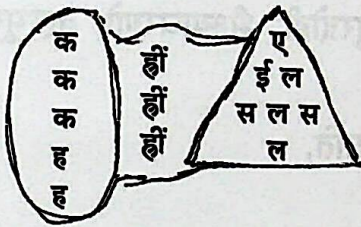 क
क
क
ह
ह
ह्रीं
ह्रीं
ह्रीं
ए
ई ल
स ल स
ल